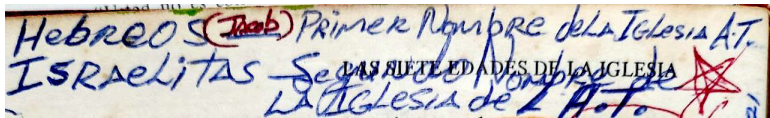 HEBREOS (Jacob) PRIMER NOMBRE de LA IGLESIA A.T.
ISRAELITAS Segundo Nombre de
LAS SIETE EDADES DE LA IGLESIA
LA IGLESIA de L A.T.